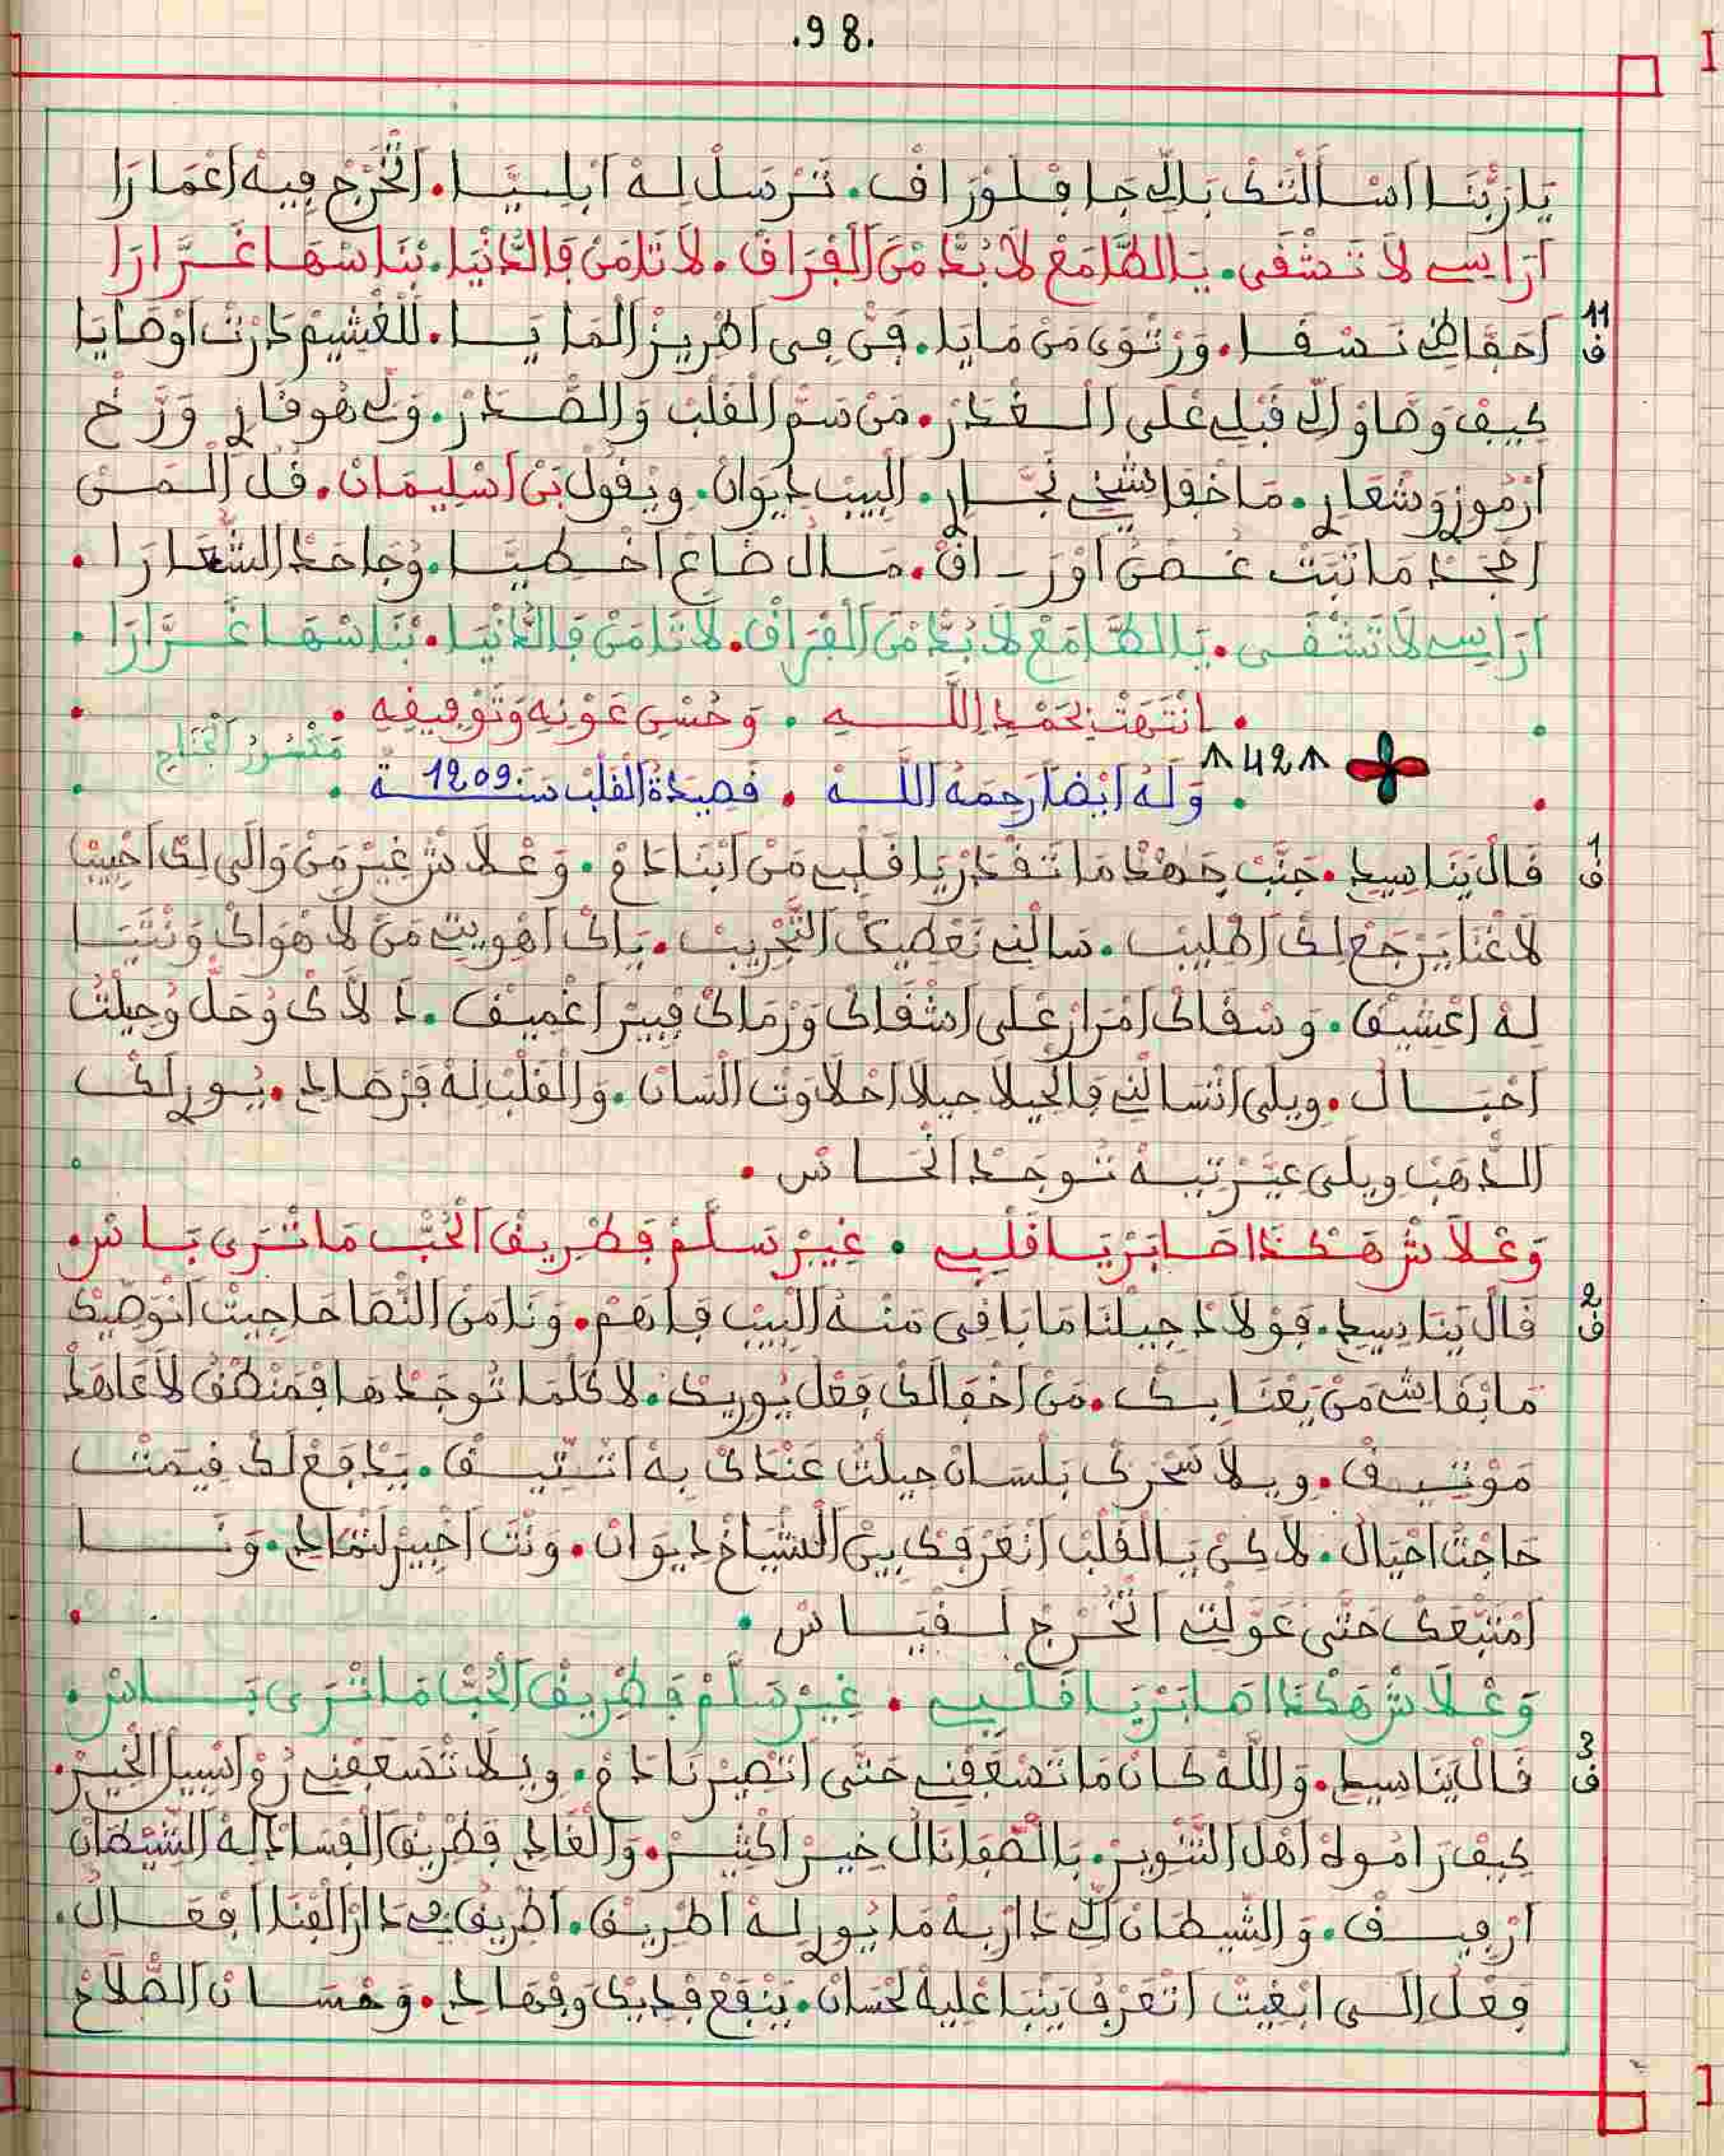 .98.
يَا رَبَّنَا اَسْأَلْتَكْ بَالِّي جَا فِلَوْرَاقْ. تَرْسَلْ لِهْ اَبْلِيَّا. اَتْخَرَّجْ فِيهْ اَعْمَارَا
اَرَاسِي لَا تَشْقَى. يَالطَّامَعْ لَابُدَّ مَنْ اَلْفْرَاقْ. لَا تَامَنْ فَالدَّنْيَا. بَنَاسْهَا غَرَّارَا
11
ف
اَحَفَّاظِي نَسْقَا. وَرْتْوَى مَنْ مَايَا. فَنِّي فِي اَطْرِيزْ اَلْمَايَا. لَلْغْشِيمْ دَرْتْ اَوْصَايَا
كِيفْ وَصَاوْ الِّي قَبْلِي عْلَى الْغْدَرْ. مَنْ سَمّ الْقَلْبْ وَالصْدَرْ. وَلِّي هُو قَارِي وَرَّخْ
اَرْمُوزْ وَشْعَارِي. مَا خْفَا شَيْخِي نَجَّارِي. اَلْبِيبْ دِيوَانْ. وِيقُولْ بَنْ اَسْلِيمَانْ. قُلْ اَلْمَنْ
اَجْحَدْ مَا نَبَتْ غُصْنْ اَوْرَاقْ. مَالْ ضَاعْ اَخْطِيَّا. وُجَاحَدْ الشُّعَارَا.
اَرَاسِي لَا تَشْقَى. يَا الطَّامَعْ لَابُدَّ مَنْ اَلْفْرَاقْ. لَا تَامَنْ فَالدَّنْيَا. بَنَاسْهَا غَرَّارَا.
. اِنْتَهَتْ بِحَمْدِ اللَّهِ . وَحُسْنِ عَوْنِهِ وَتَوْفِيقِهِ .
مَبْسُورْ اَلْجْنَاحْ
42
. وَلَهُ أَيْضًا رَحِمَهُ اللَّه . قَصِيدَةُ الْقَلْبْ سَنَة 1209 .
1
ف
قَالْ يَنَاسِيدِي. جَنَّبْ جَهْدْ مَا تَقْدَرْ يَا قَلْبِي مَنْ اَبْنَادَمْ. وَعْلَاشْ غِيرْ مَنْ وَالَى لِكْ اَحْبِيبْ
لَا غْنَا يَرْجَعْ لِكْ اَطْلِيبْ. سَالْنِي نَعْطِيكْ التَّجْرِيبْ. يَاكْ اَهْوِيتِي مَنْ لَا هْوَاكْ وَنْتَيَا
لِهْ اَعْشِيقْ. وَسْقَاكْ اَمْرَارْ عْلَى اَشْفَاكْ وَرْمَاكْ فْبِيرْ اَغْمِيقْ. دَلَّاكْ وُحَلّ وُحِيلْتُ
اَحْبَالْ. وِيلَى اَتْسَالْنِي فَالْحِيلَا حِيلَا اَحْلَاوَتْ اللْسَانْ. وَالْقَلْبْ لَهْ قَرْصَادِي. يُورِي لَكْ
الدْهَبْ وِيلَى عَيَّرْتِيهْ تُوجَدْ اَنْحَاسْ.
وَعْلَاشْ هَكْدَا صَابَرْ يَا قَلْبِي . غِيرْ سَلَّمْ فَطْرِيقْ اَلْحُبّ مَا تْرَى بَاسْ.
2
ف
قَالْ يَنَاسِيدِي. فَوْلَادْ جِيلْنَا مَا بَاقِي مَنْهْ اَلْبِيبْ فَاهَمْ. وَنَا مَنْ النْصَاحَا جِيتْ اَنْوَصِيكْ
مَا بْقَاشِي مَنْ يَعْنَا بِكْ. مَنْ اَخْفَا لَكْ فِعْلُ يُورِيكْ. لَا كَلْمَا تُوجَدْهَا فْمَنْطْقُ لَا عَاهَدْ
مَوْتِيقْ. وِيلَا سَخْرَكْ بَلْسَانْ حِيلْتُ عَنْدَكْ بِهْ اَتْتِيقْ. يَدْفَعْ لَكْ قِيمَتْ
حَاجْتْ اَحْيَالْ. لَاكِنْ يَا الْقَلْبْ اَنْعَرْفَكْ بِينْ اَلشْيَاخْ دِيوَانْ. وَنْتَ اَخْبِيرْ لَنْمَادِي. وَنَا
اَمْتَبْعَكْ حَتَّى عَوَّلْتِي اَتْخَرَّجْ لَفْيَاسْ.
وَعْلَاشْ هَكْدَا صَابَرْ يَا قَلْبِي . غِيرْ سَلَّمْ فَطْرِيقْ اَلْحُبّ مَا تْرَى بَاسْ.
3
ف
قَالْ يَنَاسِيدِي. وَاللَّهْ كَانْ مَا تَسْعَفْنِي حَتَّى اَتْصِيرْ نَادَمْ. وِيلَا تْسَعَفْنِي زُوْ اَسْبِيلْ الْخِيرْ.
كِيفْ رَامُوهْ اَهْلْ التَّنْوِيرْ. بَالصْفَا نَالْ خِيرْ اَكْثِيرْ. وَالْغَادِي فَطْرِيقْ الْفْسَادْ لِهْ الشِّيطَانْ
اَرْفِيقْ. وَالشِّيطَانْ اِلِّي دَارْ بِهْ مَا يُورِي لِهْ اَطْرِيقْ. اَطْرِيقْ فِي دَارْ الْفْنَا اَفْعَالْ.
فِعْلْ اِلَى اَبْغِيتْ اَتْعَرْفُ يَنْبَا عْلِيهْ لَحْسَانْ. يَنْفَعْ فْدِيكْ وَفْهَادِي. وَحْسَانْ الصْلَاحْ